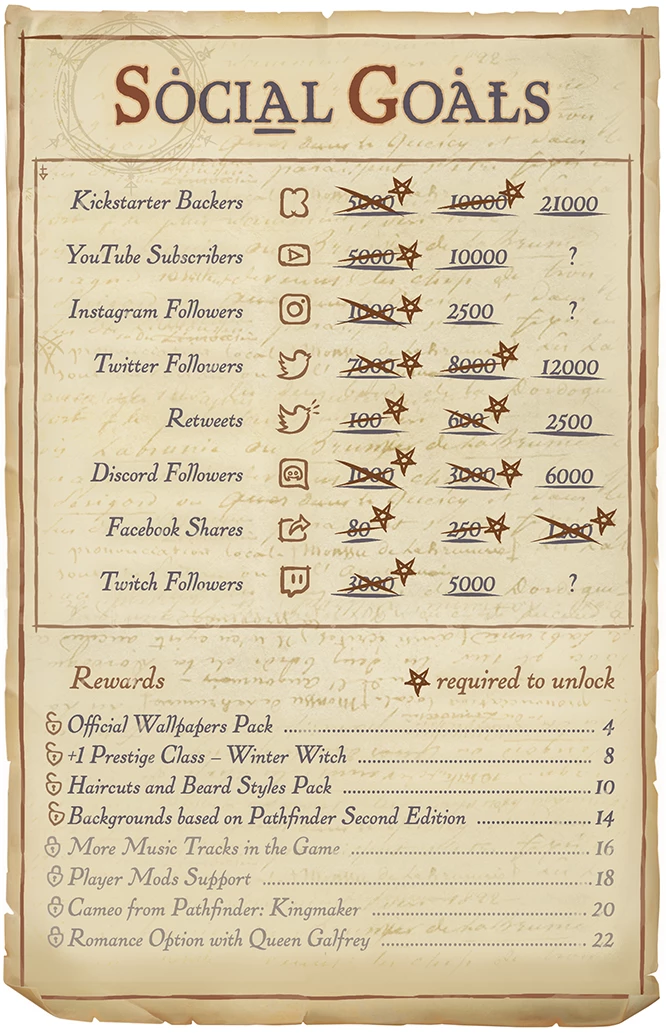 Social Goals
Kickstarter Backers 5000 10000 21000
YouTube Subscribers 5000 10000 ?
Instagram Followers 1000 2500 ?
Twitter Followers 7000 8000 12000
Retweets 100 600 2500
Discord Followers 1000 3000 6000
Facebook Shares 80 250 1200
Twitch Followers 3000 5000 ?
Rewards required to unlock
Official Wallpapers Pack 4
+1 Prestige Class – Winter Witch 8
Haircuts and Beard Styles Pack 10
Backgrounds based on Pathfinder Second Edition 14
More Music Tracks in the Game 16
Player Mods Support 18
Cameo from Pathfinder: Kingmaker 20
Romance Option with Queen Galfrey 22